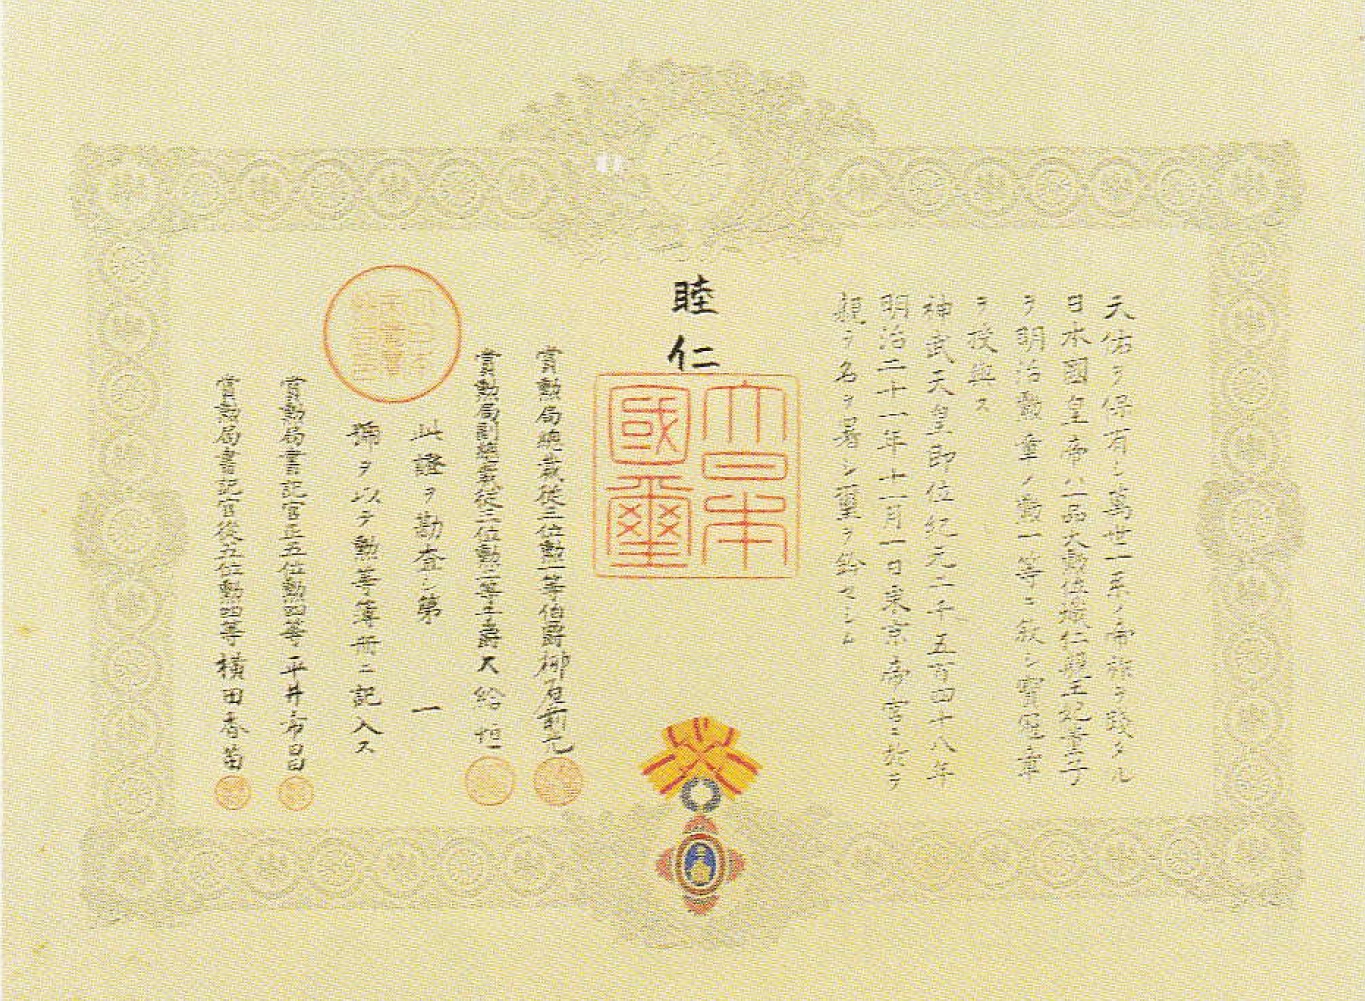 天佑ヲ保有シ萬世一系ノ帝祚ヲ踐タル
日本國皇帝ハ二品大勲位熾仁親王妃董子
ヲ明治勲章ノ勲一等ニ敍シ寶冠章
ヲ授與ス
神武天皇即位紀元二千五百四十八年
明治二十一年十一月一日東京帝宮ニ於テ
親ラ名ヲ署シ璽ヲ鈐セシム
睦仁
大日本
國璽
賞勲局總裁從三位勲一等伯爵柳原前光
賞勲局副總裁從三位勲二等子爵大給恒
此證ヲ勘査シ第一
號ヲ以テ勲等簿册ニ記入ス
賞勲局書記官正五位勲四等平井希昌
賞勲局書記官從五位勲四等横田香苗